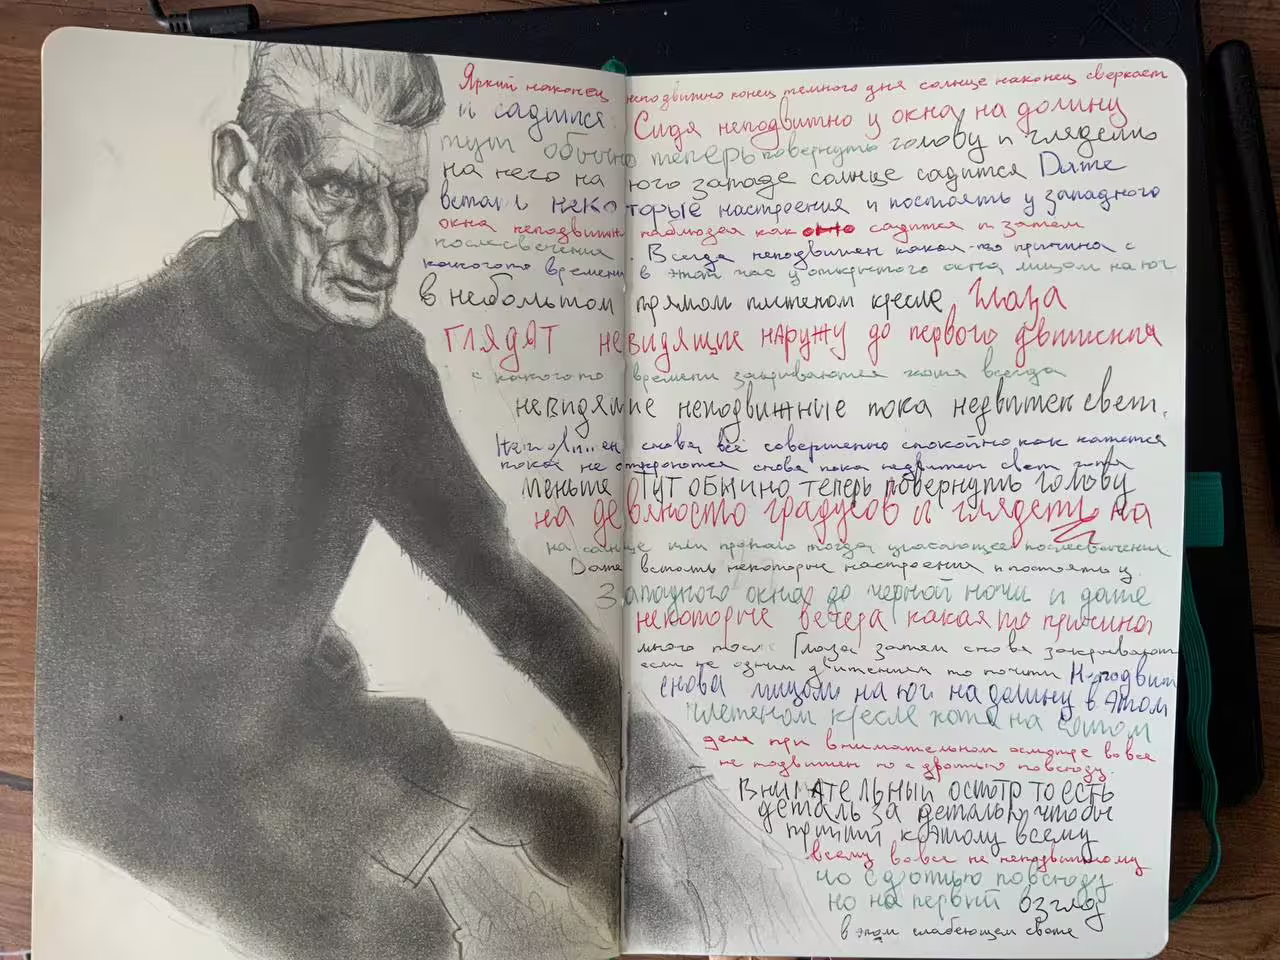 Яркий наконец неподвижно конец темного дня солнце наконец сверкает
и садится. Сидя неподвижно у окна на долину
тут обычно теперь повернуть голову и глядеть
на него на юго западе солнце садится Даже
встать некоторые настроения и постоять у западного
окна неподвижно наблюдая как оно садится и затем
послесвечения. Всегда неподвижен какая-то причина с
какого то времени в этот час у открытого окна лицом на юг
в небольшом прямом плетеном кресле Глаза
глядят невидящие наружу до первого движения
с какого то времени закрываются хотя всегда
невидящие неподвижные пока недвижен свет.
Неподвижен снова всё совершенно спокойно как кажется
пока не откроются снова пока недвижен свет хотя
меньше Тут обычно теперь повернуть голову
на девяносто градусов и глядеть на
на солнце или тогда угасающее послесвечения
Даже встать некоторые настроения и постоять у
западного окна до черной ночи и даже
некоторые вечера какая то причина
много после Глаза затем снова закрывают
если не одним движением то почти Неподвиж
снова лицом на юг на долину в этом
плетеном кресле хотя на самом
деле при внимательном осмотре вовсе
не подвижен но с дрожью повсюду.
Внимательный осмотр то есть
деталь за деталью чтобы
прийти к этому всему
всему вовсе не неподвижному
но с дрожью повсюду
но на первый взгляд
в этом слабеющем свете